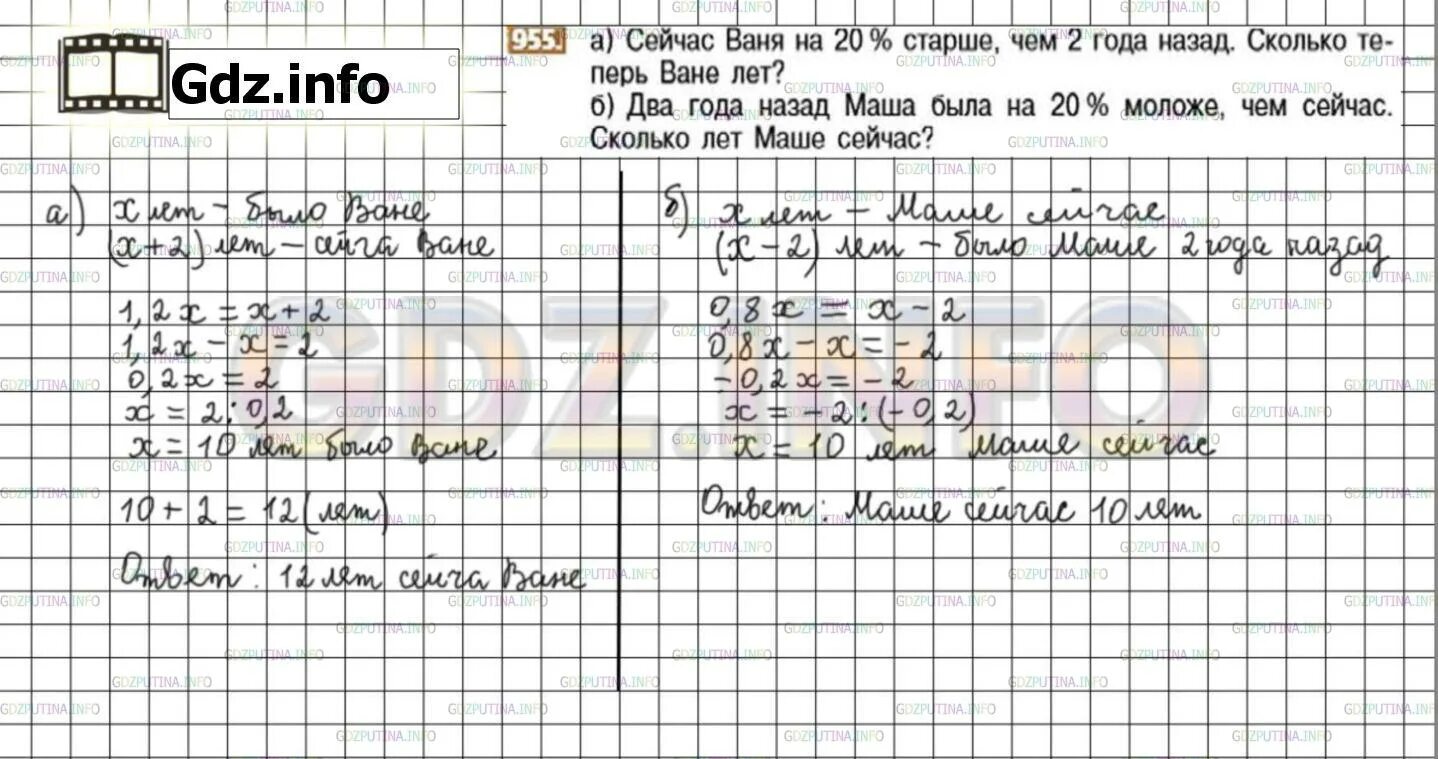 Gdz.info
955. а) Сейчас Ваня на 20 % старше, чем 2 года назад. Сколько те-
перь Ване лет?
б) Два года назад Маша была на 20 % моложе, чем сейчас.
Сколько лет Маше сейчас?
а) x лет – было Ване
(x + 2) лет – сейча Ване
1,2x = x + 2
1,2x – x = 2
0,2x = 2
x = 2 : 0,2
x = 10 лет было Ване
10 + 2 = 12 (лет)
Ответ : 12 лет сейча Ване
б) x лет – Маше сейчас
(x – 2) лет – было Маше 2 года назад
0,8x = x – 2
0,8x – x = – 2
– 0,2x = – 2
x = – 2 : (– 0,2)
x = 10 лет Маше сейчас
Ответ : Маше сейчас 10 лет
GDZ.INFO
GDZPUTINA.INFO